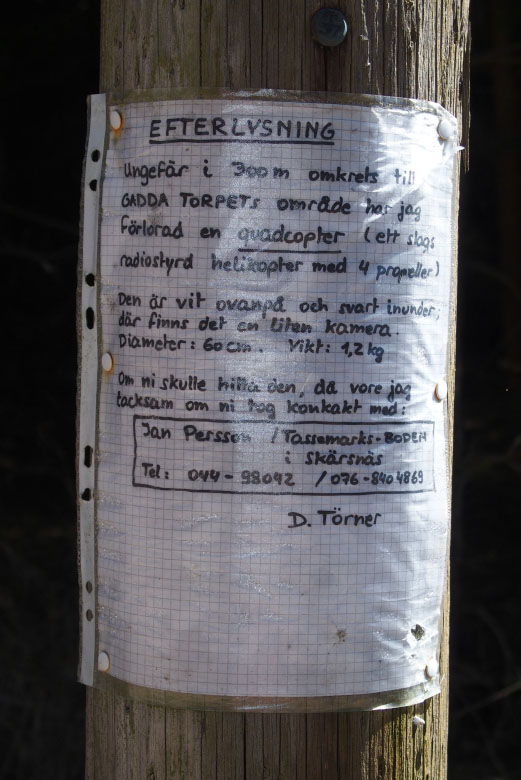 EFTERLYSNING
Ungefär i 300 m omkrets till
GADDA TORPETs område har jag
förlorad en quadcopter (ett slags
radiostyrd helikopter med 4 propeller)
Den är vit ovanpå och svart inunder,
där finns det en liten kamera.
Diameter: 60 cm. Vikt: 1,2 kg
Om ni skulle hitta den, då vore jag
tacksam om ni tog kontakt med:
Jan Persson / Tassemarks-BODEN
i Skärsnäs
Tel: 044-98042 / 076-840 4869
D. Törner